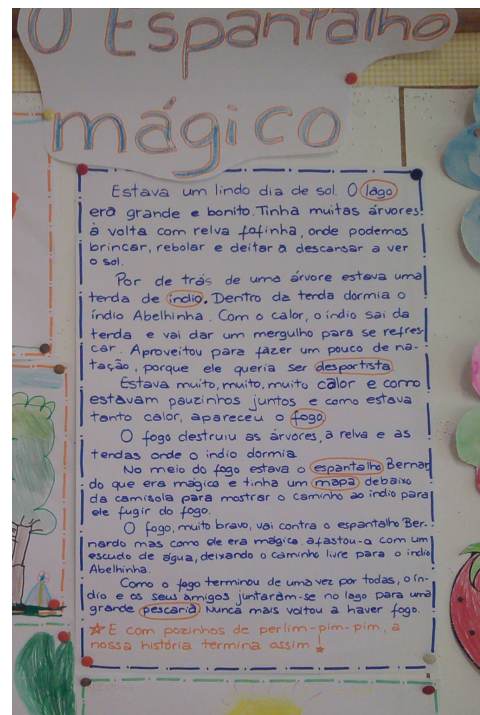 O Espantalho
mágico
Estava um lindo dia de sol. O lago
era grande e bonito. Tinha muitas árvores
à volta com relva fofinha, onde podemos
brincar, rebolar e deitar a descansar a ver
o sol.
Por de trás de uma árvore estava uma
tenda de índio. Dentro da tenda dormia o
índio Abelhinha. Com o calor, o índio sai da
tenda e vai dar um mergulho para se refres
car. Aproveitou para fazer um pouco de na-
tação, porque ele queria ser desportista.
Estava muito, muito, muito calor e como
estavam pauzinhos juntos e como estava
tanto calor, apareceu o fogo
O fogo destruiu as árvores, a relva e as
tendas onde o índio dormia
No meio do fogo estava o espantalho Bernar
do que era mágico e tinha um mapa debaixo
da camisola para mostrar o caminho ao índio para
ele fugir do fogo.
O fogo, muito bravo, vai contra o espantalho Ber-
nardo mas como ele era mágico, afastou-o com um
escudo de água, deixando o caminho livre para o índio
Abelhinha.
Como o fogo terminou de uma vez por todas, o ín-
dio e os seus amigos juntaram-se no lago para uma
grande pescaria. Nunca mais voltou a haver fogo.
E com pozinhos de perlim-pim-pim, a
nossa história termina assim!